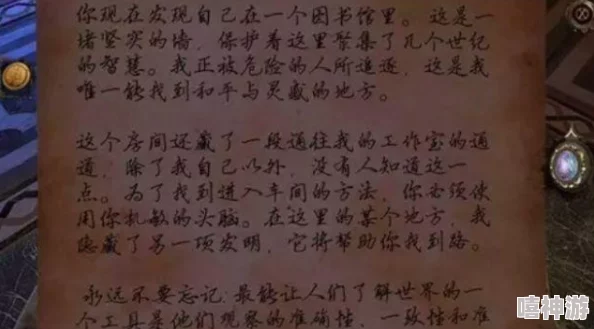 你现在发现自己在一个图书馆里。这是一
堵坚实的墙，保护着这里聚集了几个世纪
的智慧。我正被危险的人所追逐，这是我
唯一能找到和平与灵感的地方。
这个房间还藏了一段通往我的工作室的通
道，除了我自己以外，没有人知道这一
点。为了找到进入车间的方法，你必须使
用你机敏的头脑。在这里的某个地方，我
隐藏了另一项发明，它将帮助你找到路。
永远不要忘记:最能让人们了解世界的一
个工具是他们观察的准确性，一致性和准
嘻神游